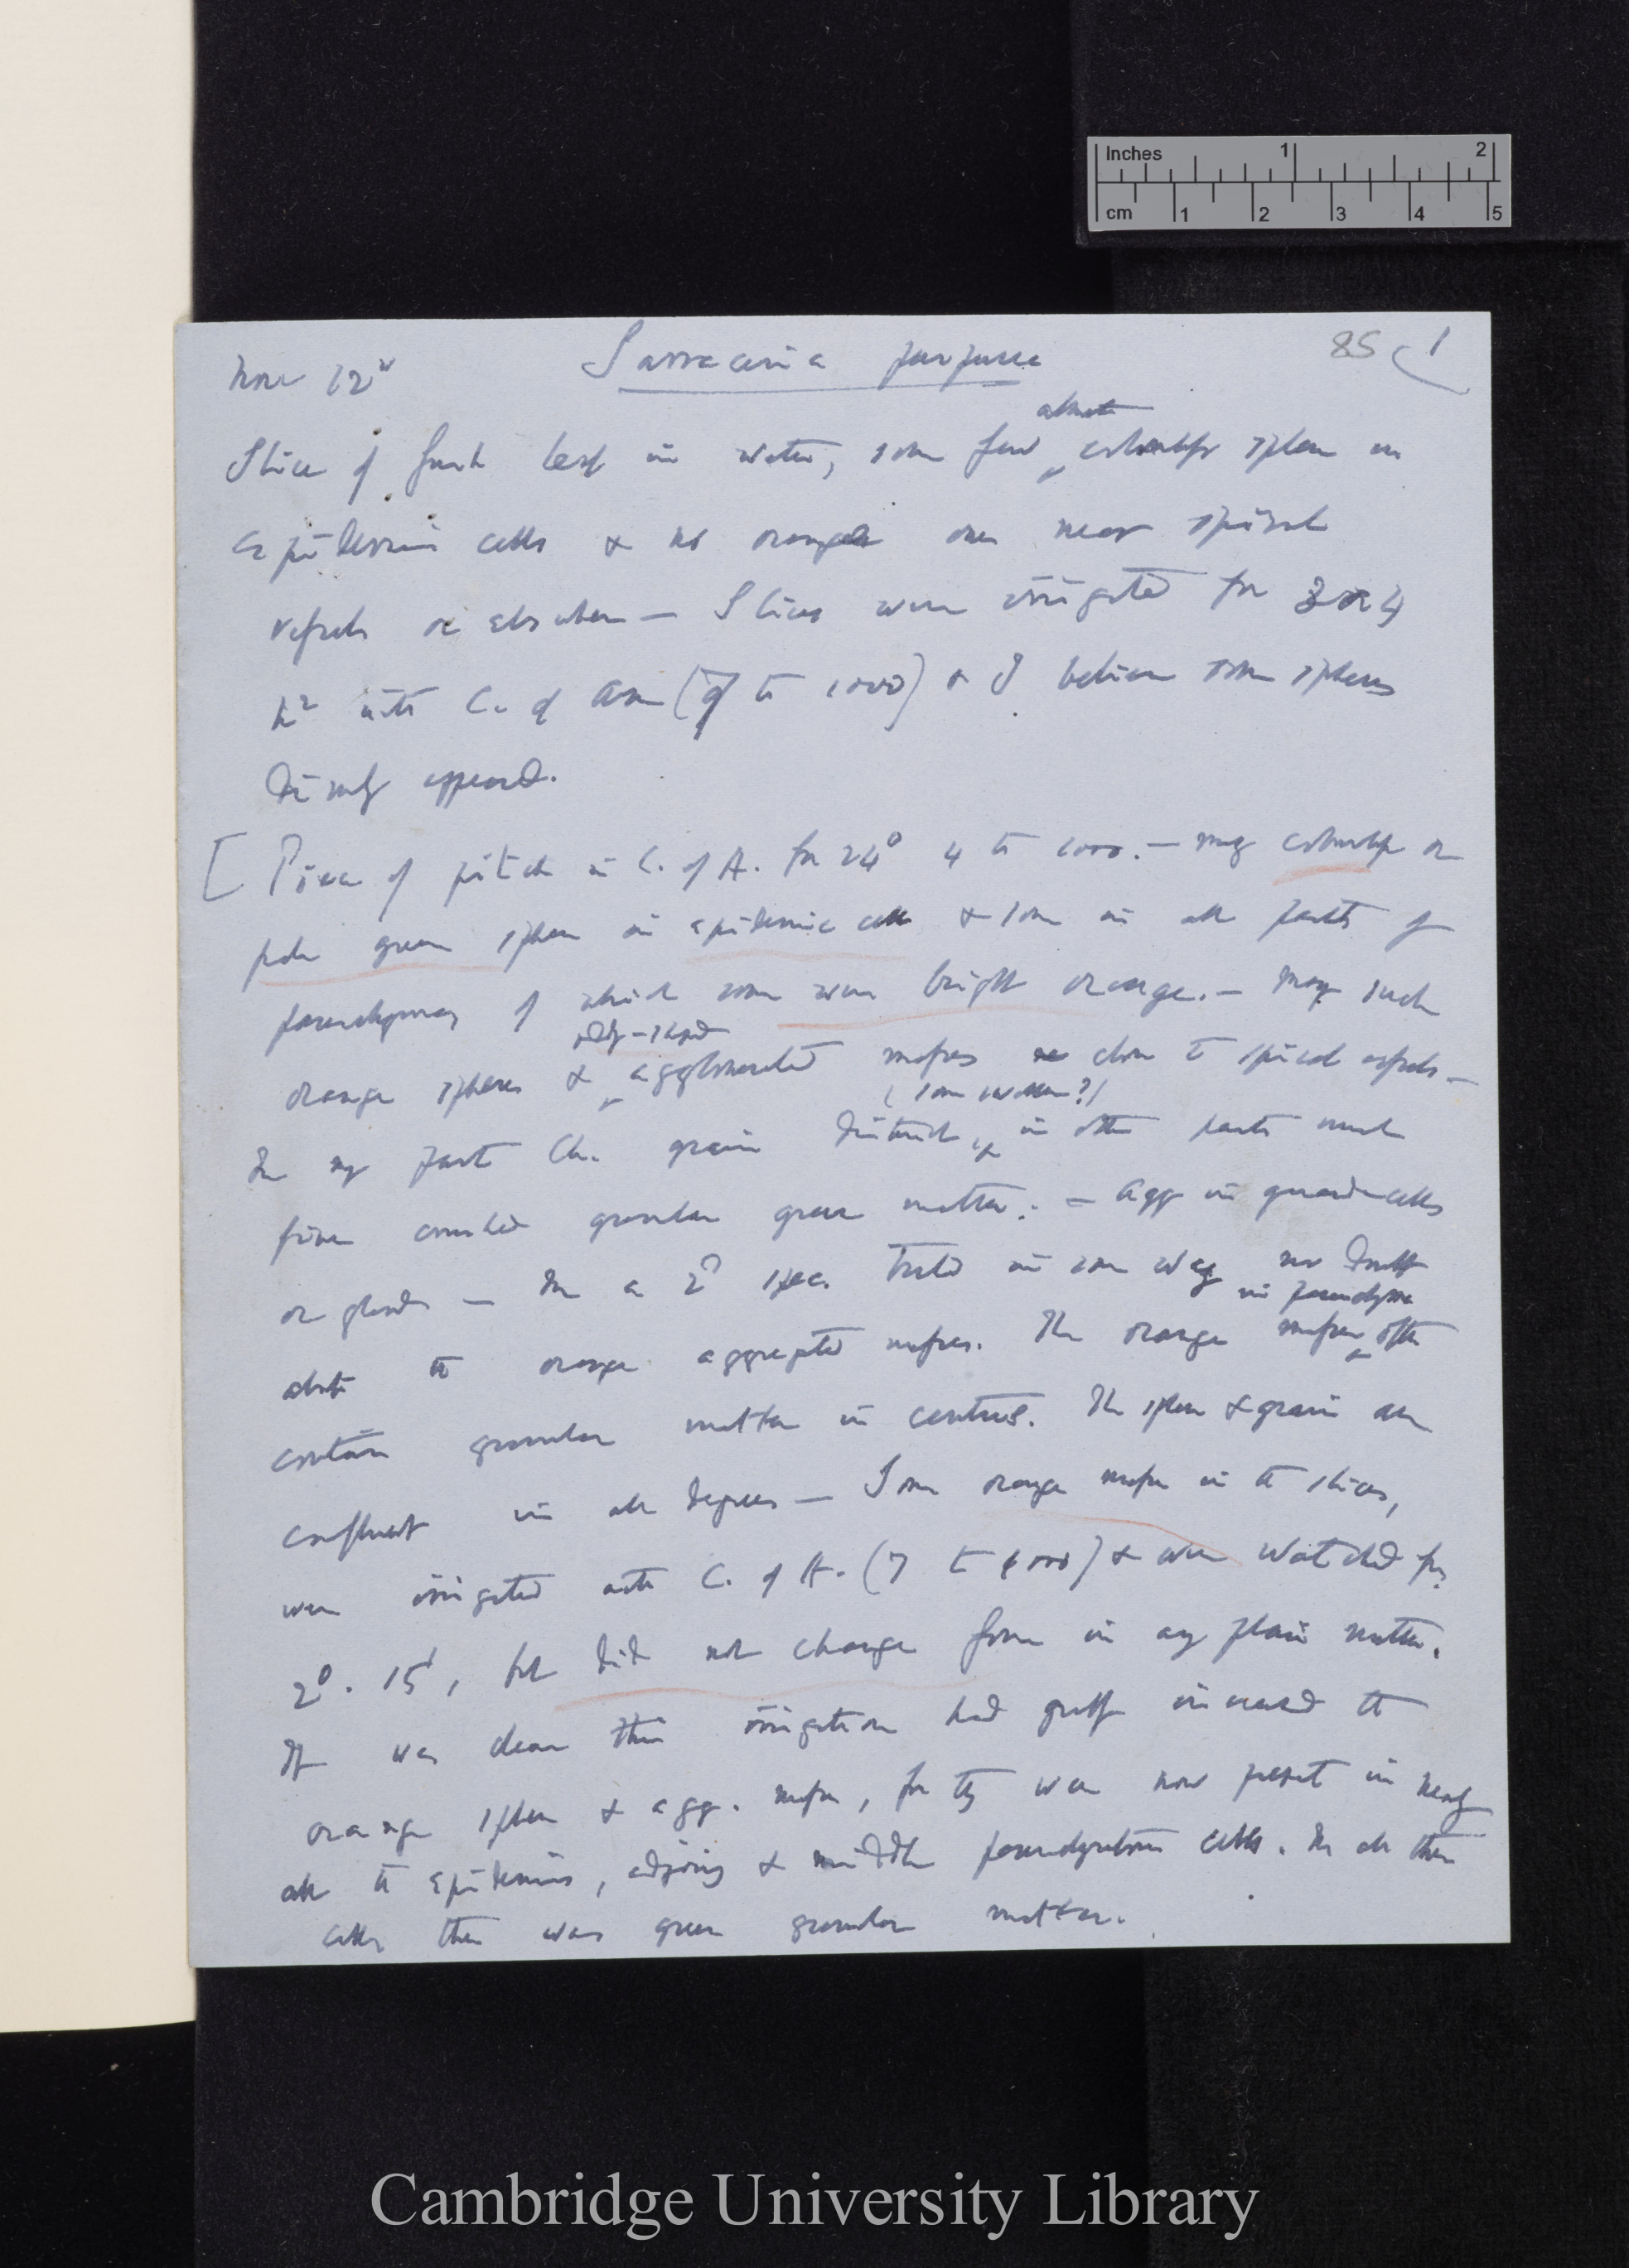 Inches 1 2
cm 1 2 3 4 5
85 1
Nov 12th Sarracenia purpurea
almost
Slice of fresh leaf in water, some few colourless spheres in
epidermic cells & no orange ones near spiral
vessels or elsewhere — Slices were irrigated for 3 or 4
with C. of Am (7 to 1000) & I believe some spheres
dimly appeared.
[Piece of pitcher in C. of A. for 24° 4 to 1000. — many colourless or
pale green spheres in epidermic cells & some in all parts of
parenchyma, of which some were bright orange. — Many such
oddly-shaped
orange spheres & agglomerated masses close to spiral vessels —
(some swollen?)
In many parts Ch. grains distinct, in other parts much
fine crushed granular green matter: — Agg in guard-cells
or glands — In a 2d spec. treated in same way no doubt
in parenchyma
about the orange aggregated masses. The orange masses often
contain granular matter in centres. The spheres & grains are
confluent in all degrees — Some orange masses in the slices,
were irrigated with C. of A. (7 to 1000) & were watched for
2°. 15', but did not change form in any plain matter.
It was clear this irrigation had greatly increased the
orange spheres & agg. masses, for they were now present in nearly
all the epidermis, adjoining & middle parenchymatous cells. In all these
cells there was green granular matter.
Cambridge University Library